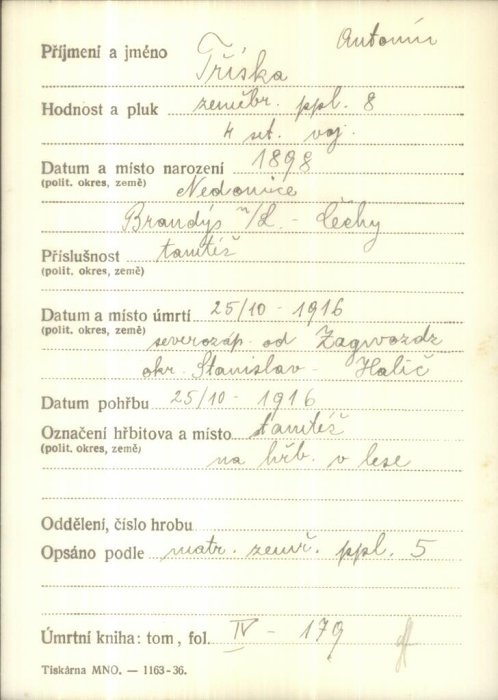 Antonín
Příjmení a jméno Tříska
Hodnost a pluk zeměbr. ppl. 8
4 set. voj.
Datum a místo narození 1898
(polit. okres, země) Nedomice
Brandýs n/L. - Čéchy
Příslušnost tamtéž
(polit. okres, země)
Datum a místo úmrtí 25/10 - 1916
(polit. okres, země) severozáp. od Zagwozdz
okr. Stanislav - Halič
Datum pohřbu 25/10 - 1916
Označení hřbitova a místo tamtéž
(polit. okres, země) na hřb. v lese
Oddělení, číslo hrobu
Opsáno podle matr. zemř. ppl. 5
Úmrtní kniha: tom, fol. IV - 179
Tiskárna MNO. — 1163-36.